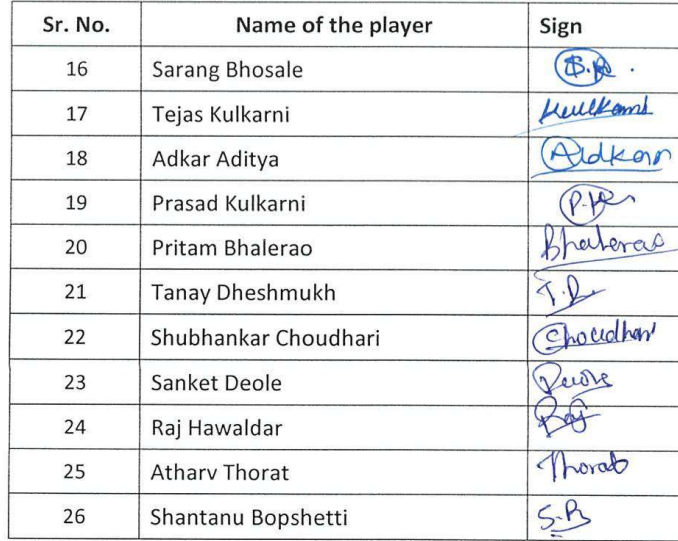 Sr. No. Name of the player Sign
16 Sarang Bhosale
17 Tejas Kulkarni Kulkarni
18 Adkar Aditya Adkar
19 Prasad Kulkarni
20 Pritam Bhalerao Bhalerao
21 Tanay Dheshmukh
22 Shubhankar Choudhari Choudhari
23 Sanket Deole Deole
24 Raj Hawaldar Raj
25 Atharv Thorat Thorat
26 Shantanu Bopshetti S.B